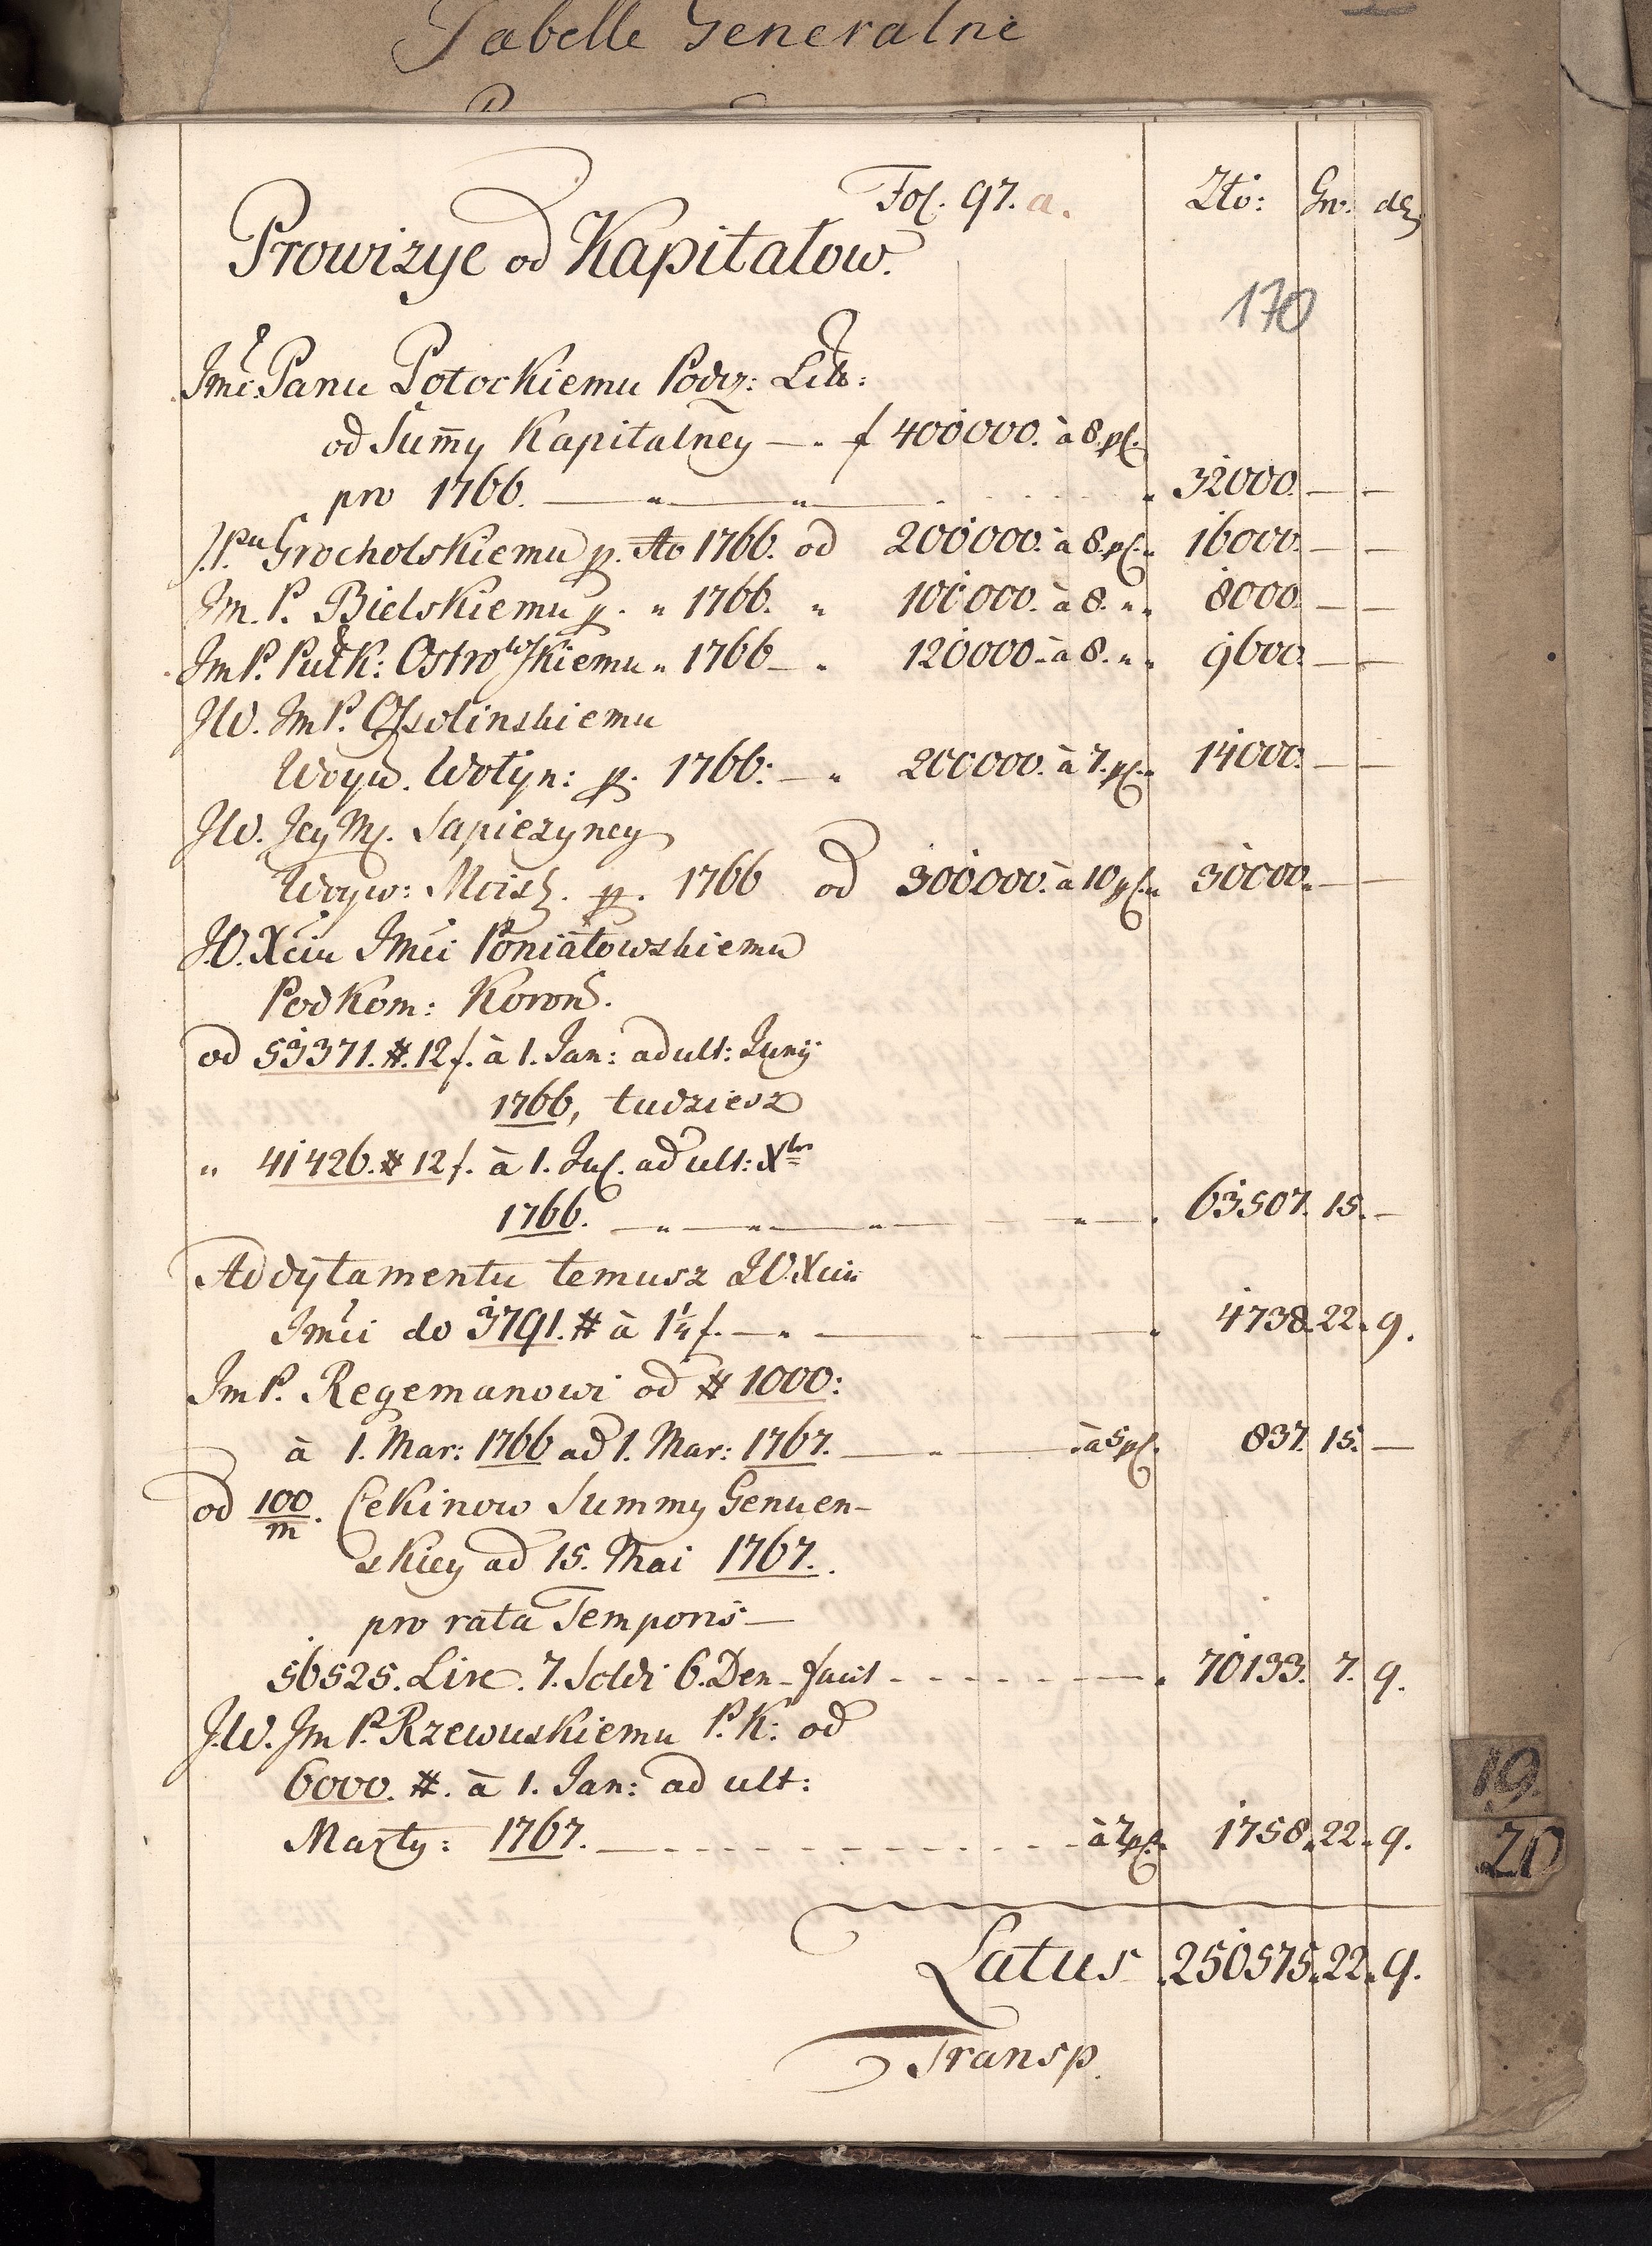 Tabelle Generalne
Fol. 97. a.
Złо: Gr. d.
Prowizye od Kapitałow.
170
Jmć Panu Potockiemu Podcz: Litt:
od Sum̄y Kapitalney f 400000. à 8. pC.
pro 1766. 32000. — —
J.Pu Grocholskiemu p. Ao 1766. od 200000. à 8. pC. 16000. — —
Jm. P. Bielskiemu p. " 1766. " 100000. à 8. " " 8000. — —
Jm P. Pułk: Ostrowskiemu " 1766 " 120000. à 8. " " 9600. — —
JW. Jm P. Ossolinskiemu
Woyw. Wołyn: p. 1766: " 200000. à 7. pC. 14000. — —
JW. Jey M. Sapiezyney
Woyw: Mcisł. p. 1766 od 300000. à 10 pC. 30000. — —
JO. Xciu Jmci Poniatowskiemu
PodKom: Koron.
od 53371. #. 12 f. à 1. Jan: ad ult: Junij
1766, tudziesz
" 41426. # 12 f. à 1. Jul. ad ult: Xbr
1766. 63507. 15. —
Addytamentu temusz JO. Xciu
Jmci do 3791. # à 1¼ f. 4738. 22. 9.
Jm P. Regemanowi od # 1000:
à 1. Mar: 1766 ad 1. Mar: 1767. à 5 pC. 837. 15. —
od 100/m. Cekinow Summy Genuen-
skiey ad 15. Mai 1767.
pro rata Temporis —
56525. Lire. 7. Soldi 6. Den. facit 70133. 7. 9.
J.W. Jm P. Rzewuskiemu P. K: od
6000. #. à 1. Jan: ad ult:
Marty: 1767. à 7 pC. 1758. 22. 9.
19.
20
Latus 250575. 22. 9.
Transp.